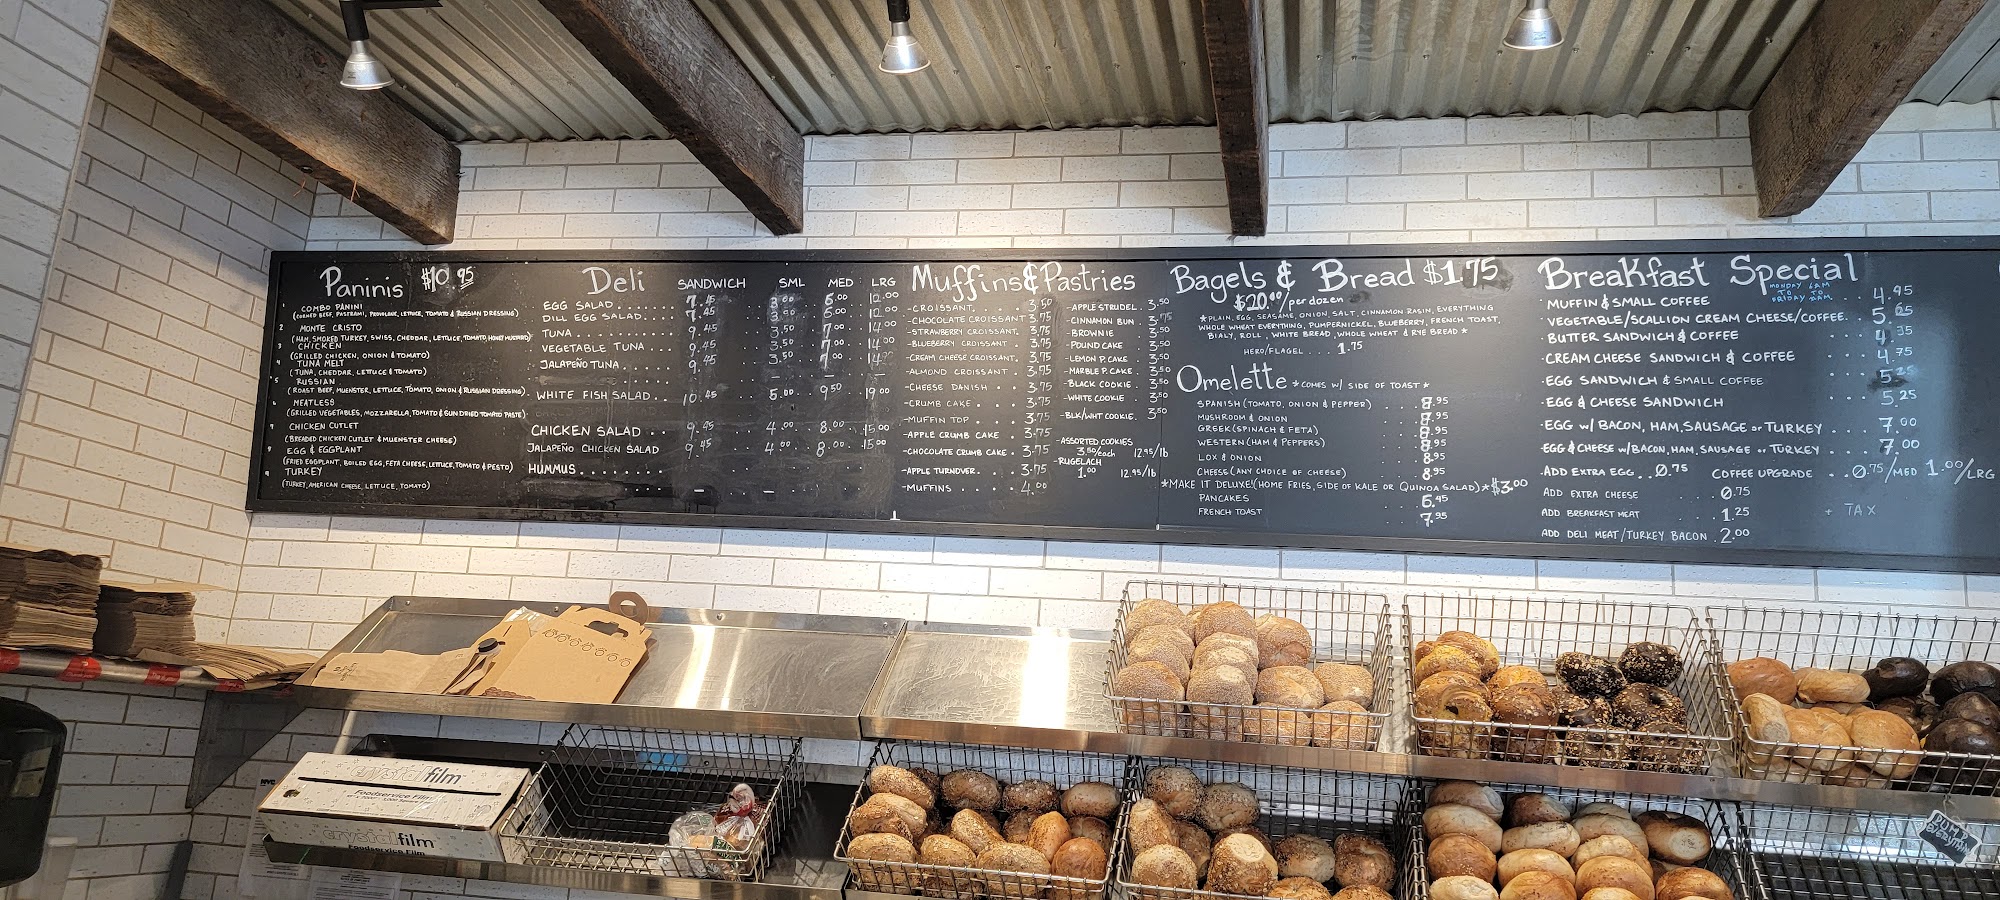 Paninis $10.95
1 COMBO PANINI
(CORNED BEEF, PASTRAMI, PROVOLONE, LETTUCE, TOMATO & RUSSIAN DRESSING)
2 MONTE CRISTO
(HAM, SMOKED TURKEY, SWISS, CHEDDAR, LETTUCE, TOMATO, HONEY MUSTARD)
3 CHICKEN
(GRILLED CHICKEN, ONION & TOMATO)
TUNA MELT
(TUNA, CHEDDAR, LETTUCE & TOMATO)
5 RUSSIAN
(ROAST BEEF, MUENSTER, LETTUCE, TOMATO, ONION & RUSSIAN DRESSING)
MEATLESS
(GRILLED VEGETABLES, MOZZARELLA, TOMATO & SUN DRIED TOMATO PASTE)
CHICKEN CUTLET
(BREADED CHICKEN CUTLET & MUENSTER CHEESE)
EGG & EGGPLANT
(FRIED EGGPLANT, BOILED EGG, FETA CHEESE, LETTUCE, TOMATO & PESTO)
TURKEY
(TURKEY, AMERICAN CHEESE, LETTUCE, TOMATO)
Deli SANDWICH SML MED LRG
EGG SALAD 7.45 3.00 6.00 12.00
DILL EGG SALAD 7.45 3.00 6.00 12.00
TUNA 9.45 3.50 7.00 14.00
VEGETABLE TUNA 9.45 3.50 7.00 14.00
JALAPEÑO TUNA 9.45 3.50 7.00 14.00
WHITE FISH SALAD 10.45 5.00 9.50 19.00
CHICKEN SALAD 9.45 4.00 8.00 15.00
JALAPEÑO CHICKEN SALAD 9.45 4.00 8.00 15.00
HUMMUS
Muffins & Pastries
-CROISSANT 3.50
-CHOCOLATE CROISSANT 3.75
-STRAWBERRY CROISSANT 3.75
-BLUEBERRY CROISSANT 3.75
-CREAM CHEESE CROISSANT 3.75
-ALMOND CROISSANT 3.75
-CHEESE DANISH 3.75
-CRUMB CAKE 3.75
-MUFFIN TOP 3.75
-APPLE CRUMB CAKE 3.75
-CHOCOLATE CRUMB CAKE 3.75
-APPLE TURNOVER 3.75
-MUFFINS 4.00
-APPLE STRUDEL 3.50
-CINNAMON BUN 3.75
-BROWNIE 3.50
-POUND CAKE 3.50
-LEMON P. CAKE 3.50
-MARBLE P. CAKE 3.50
-BLACK COOKIE 3.50
-WHITE COOKIE 3.50
-BLK/WHT COOKIE 3.50
-ASSORTED COOKIES
3.50/each 12.95/lb
-RUGELACH
1.00 12.95/lb
Bagels & Bread $1.75
$20.00/per dozen
*PLAIN, EGG, SEASAME, ONION, SALT, CINNAMON RASIN, EVERYTHING
WHOLE WHEAT EVERYTHING, PUMPERNICKEL, BLUEBERRY, FRENCH TOAST,
BIALY, ROLL, WHITE BREAD, WHOLE WHEAT & RYE BREAD*
HERO/FLAGEL .... 1.75
Omelette *COMES W/ SIDE OF TOAST*
SPANISH (TOMATO, ONION & PEPPER) 8.95
MUSHROOM & ONION 8.95
GREEK (SPINACH & FETA) 8.95
WESTERN (HAM & PEPPERS) 8.95
LOX & ONION 8.95
CHEESE (ANY CHOICE OF CHEESE) 8.95
*MAKE IT DELUXE! (HOME FRIES, SIDE OF KALE OR QUINOA SALAD)* $3.00
PANCAKES 6.45
FRENCH TOAST 7.95
Breakfast Special
MONDAY 6AM
TO TO
FRIDAY 11AM
·MUFFIN & SMALL COFFEE 4.95
·VEGETABLE/SCALLION CREAM CHEESE/COFFEE 5.25
·BUTTER SANDWICH & COFFEE 4.35
·CREAM CHEESE SANDWICH & COFFEE 4.75
·EGG SANDWICH & SMALL COFFEE 5.25
·EGG & CHEESE SANDWICH 5.25
·EGG W/ BACON, HAM, SAUSAGE or TURKEY 7.00
·EGG & CHEESE W/BACON, HAM, SAUSAGE or TURKEY 7.00
·ADD EXTRA EGG .. 0.75 COFFEE UPGRADE .. 0.75/MED 1.00/LRG
ADD EXTRA CHEESE 0.75
ADD BREAKFAST MEAT 1.25 + TAX
ADD DELI MEAT/TURKEY BACON 2.00
crystal film
Foodservice Film
crystal film
Foodservice Film
EVERYTHING